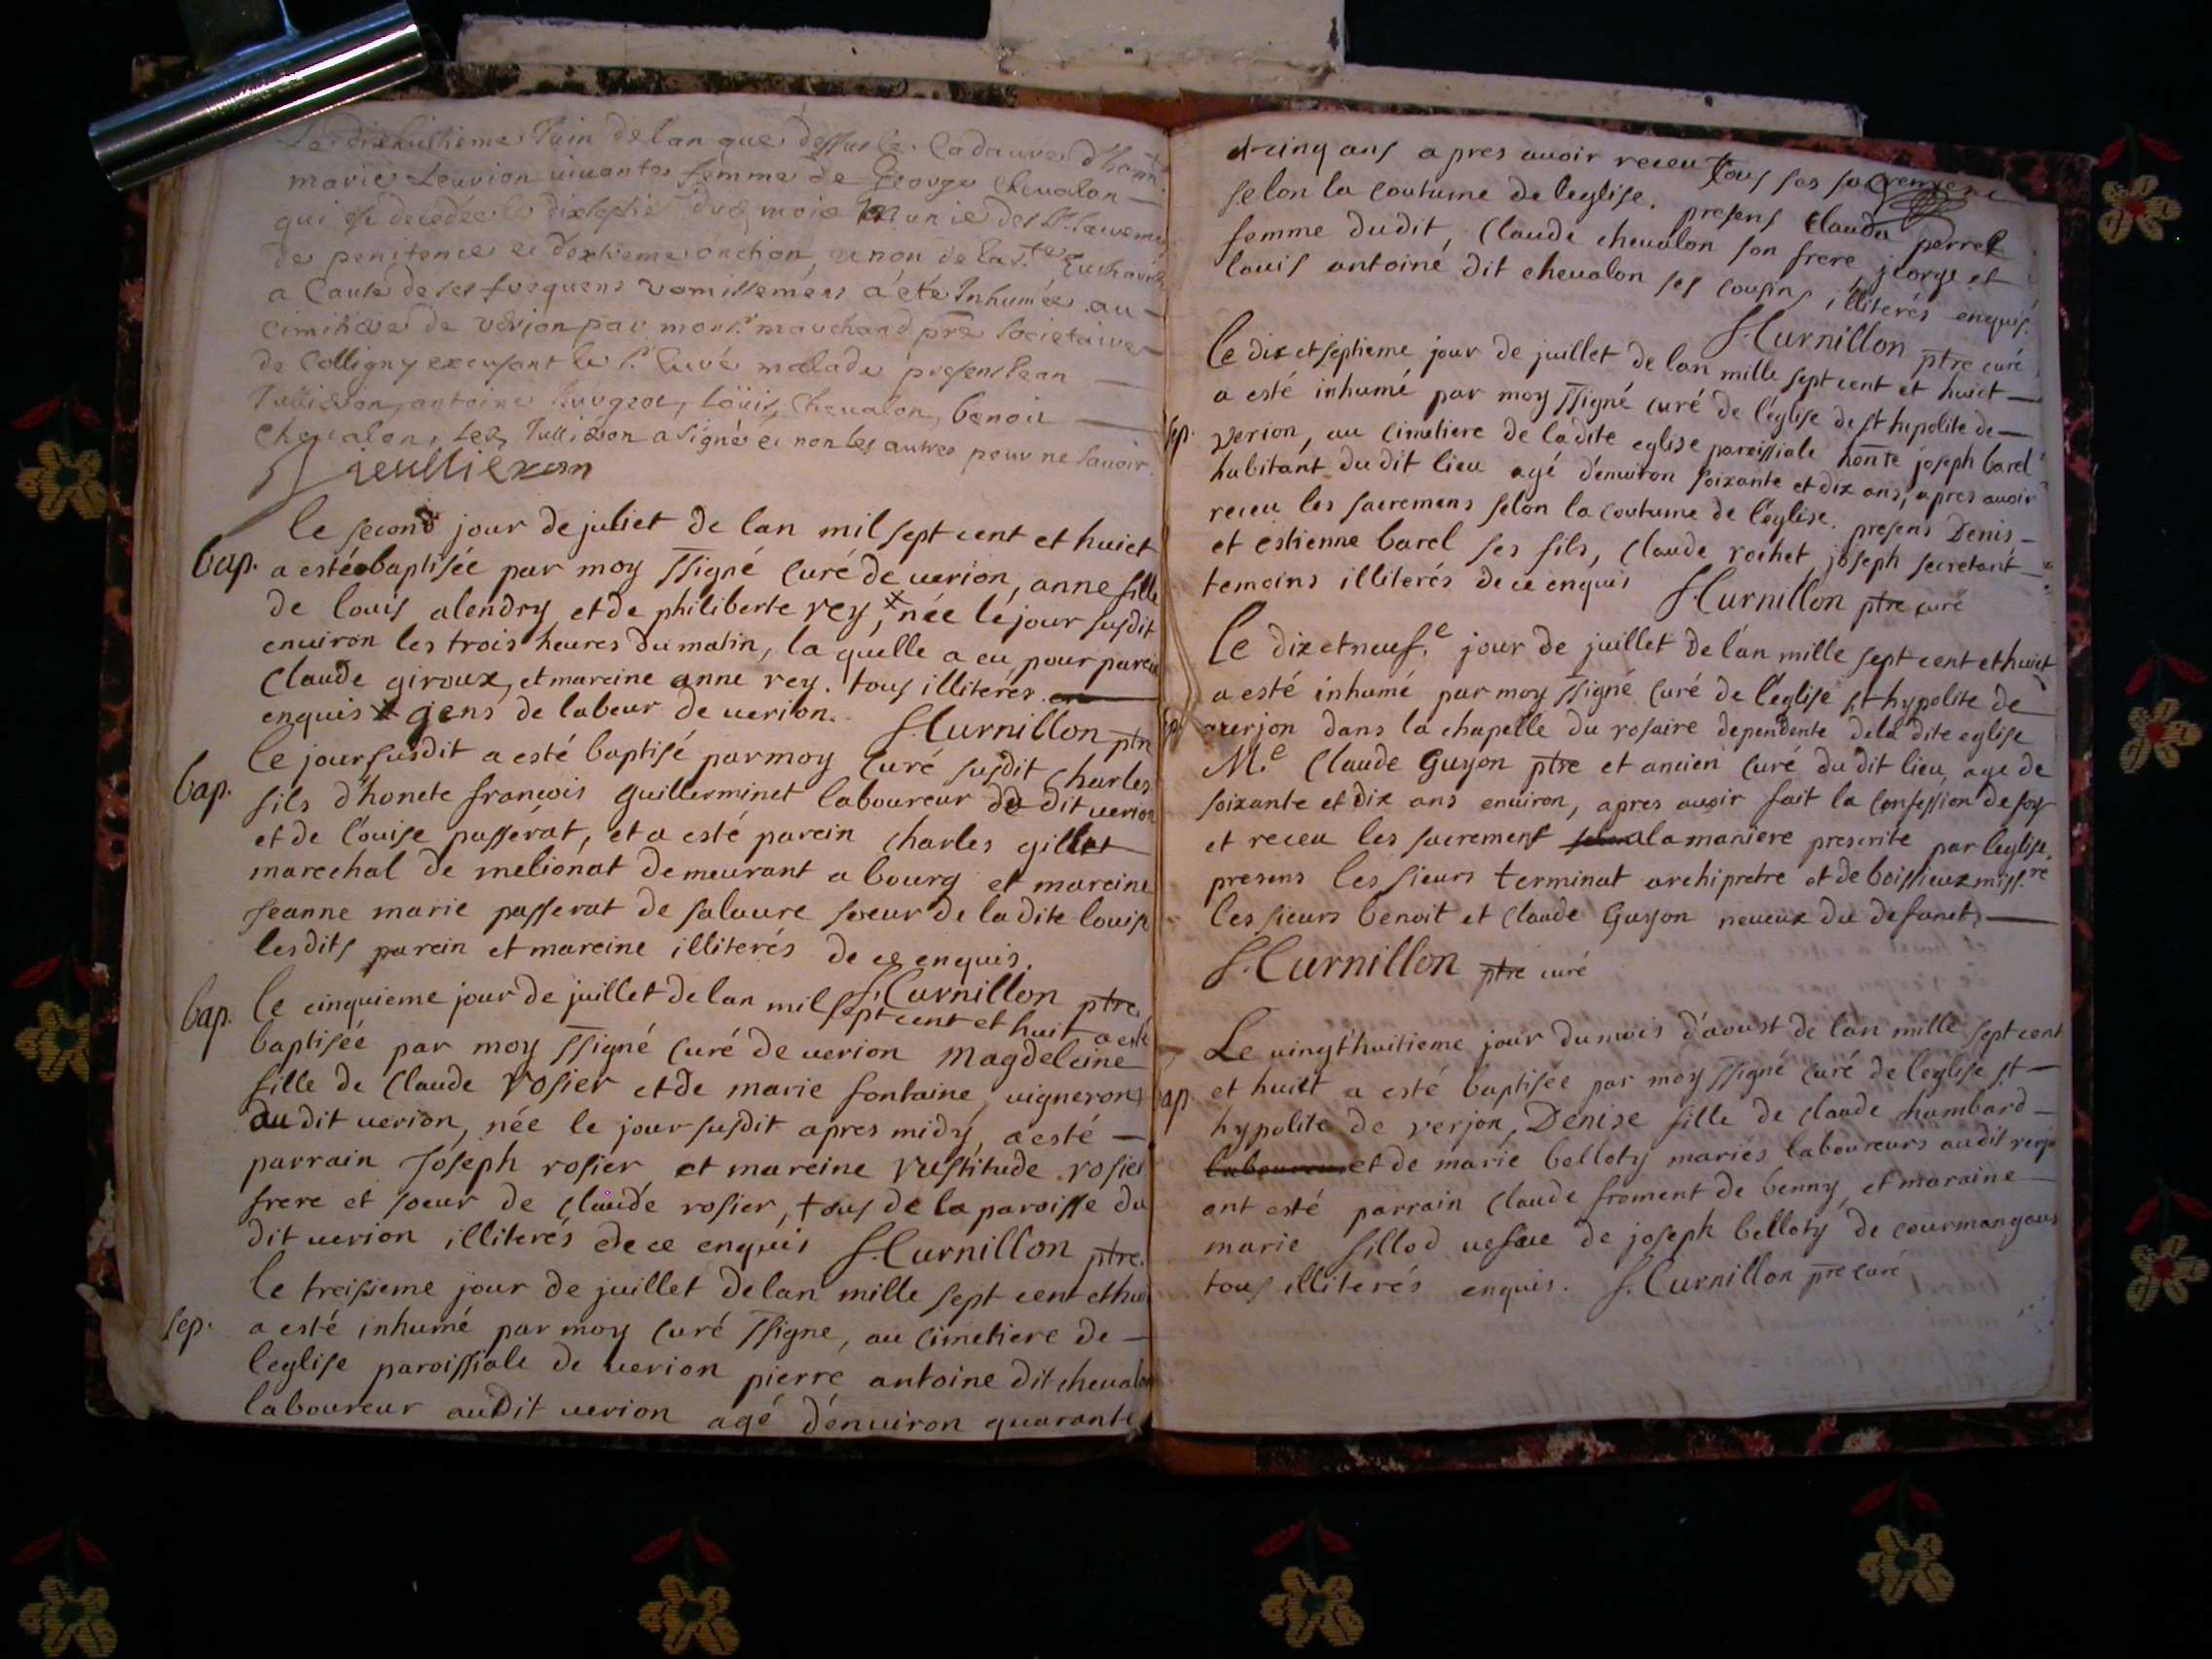 Le dixhuitieme Juin de lan que dessus le Cadauvre d'honn.
marie Leurion uiuante femme de George Cheualon —
qui est decedée le dixseptie du mois munie des St. sacremens
de penitence et d'extreme onction, et non de la Ste Eucharistie
a Cause de ses frequens vomissemens a été Inhumée au —
cimitiere de verjon par monsr. marchand pre societaire —
de Colligny excusant le Sr. Curé malade presens Jean —
Jullieron, antoine, Loüis, Cheualon, benoit —
Cheualon, Led. Jullieron a signé et non les autres pour ne sauoir.
jeulliéron
le second jour de juliet de lan mil sept cent et huict
bap. a esté baptisée par moy ssigné Curé de uerion, anne fille
de louis alondry et de philiberte rey, x née le jour susdit
enuiron les trois heures du matin, la quelle a eu pour parein
Claude giroux, et mareine anne rey. tous illiterés
enquis x gens de labeur de uerion. S. Curnillon ptre
le jour susdit a esté baptisé par moy Curé susdit Charles
bap. fils d'honete francois guillerminet laboureur du dit uerion
et de louise passerat, et a esté parein charles gillet
marechal de melionat demeurant a bourg et mareine
Jeanne marie passerat de salaure soeur de la dite louise
lesdits parein et mareine illiterés de ce enquis.
S. Curnillon ptre
bap. le cinquieme jour de juillet de lan mil sept cent et huit a esté
baptisée par moy ssigné Curé de uerion Magdeleine
fille de Claude Rosier et de marie fontaine, uignerons
du dit uerion, née le jour susdit apres midy, a esté —
parrain Joseph rosier et mareine restitude rosier
frere et soeur de Claude rosier, tous de la paroisse du
dit uerion illiterés de ce enquis S. Curnillon ptre.
le treisieme jour de juillet de lan mille sept cent et huit
sep. a esté inhumé par moy Curé ssigne, au cimetiere de —
leglise paroissiale de uerion pierre antoine dit cheualon
laboureur audit uerion agé d'enuiron quarante
et cinq ans apres auoir receu tous ses sacremens
selon la coutume de leglise. presens Clauda perret
femme dudit, Claude cheualon son frere, jeorge et
louis antoine dit cheualon ses cousins illiterés enquis.
S. Curnillon ptre curé
le dix et septieme jour de juillet de lan mille sept cent et huict —
a esté inhumé par moy ssigné curé de léglise de st hipolite de —
sep. verion, au cimetiere de ladite eglise paroissiale honte joseph barel
habitant du dit lieu agé d'enuiron soixante et dix ans, apres auoir
receu les sacremens selon la coutume de léglise. presens Denis —
et estienne barel ses fils, Claude rochet, joseph secretant —
temoins illiterés de ce enquis S. Curnillon ptre curé
le dix et neuf.e jour de juillet de lán mille sept cent et huict
a esté inhumé par moy ssigné Curé de léglise st hypolite de
sep. uerjon dans la chapelle du rosaire dependente dela dite eglise
M.e Claude Guyon ptre et ancien curé du dit lieu, age de
soixante et dix ans enuiron, apres auoir fait la confession de foy
et receu les sacrement a la maniere prescrite par leglise,
presens les sieurs terminat archipretre et de boissieux miss.re
les sieurs benoit et Claude Guyon neueux du defunct, —
S. Curnillon ptre curé
Le uingt huitieme jour du mois d'aoust de lan mille sept cent
bap. et huict a esté baptisée par moy ssigné curé de leglise st —
hypolite de verjon, Denise fille de claude humbard —
laboureur et de marie belloty mariés laboureurs audit verjo
ont esté parrain Claude froment de benny, et maraine —
marie fillod uefue de joseph belloty de courmangoux
tous illiterés enquis. S. Curnillon pre curé